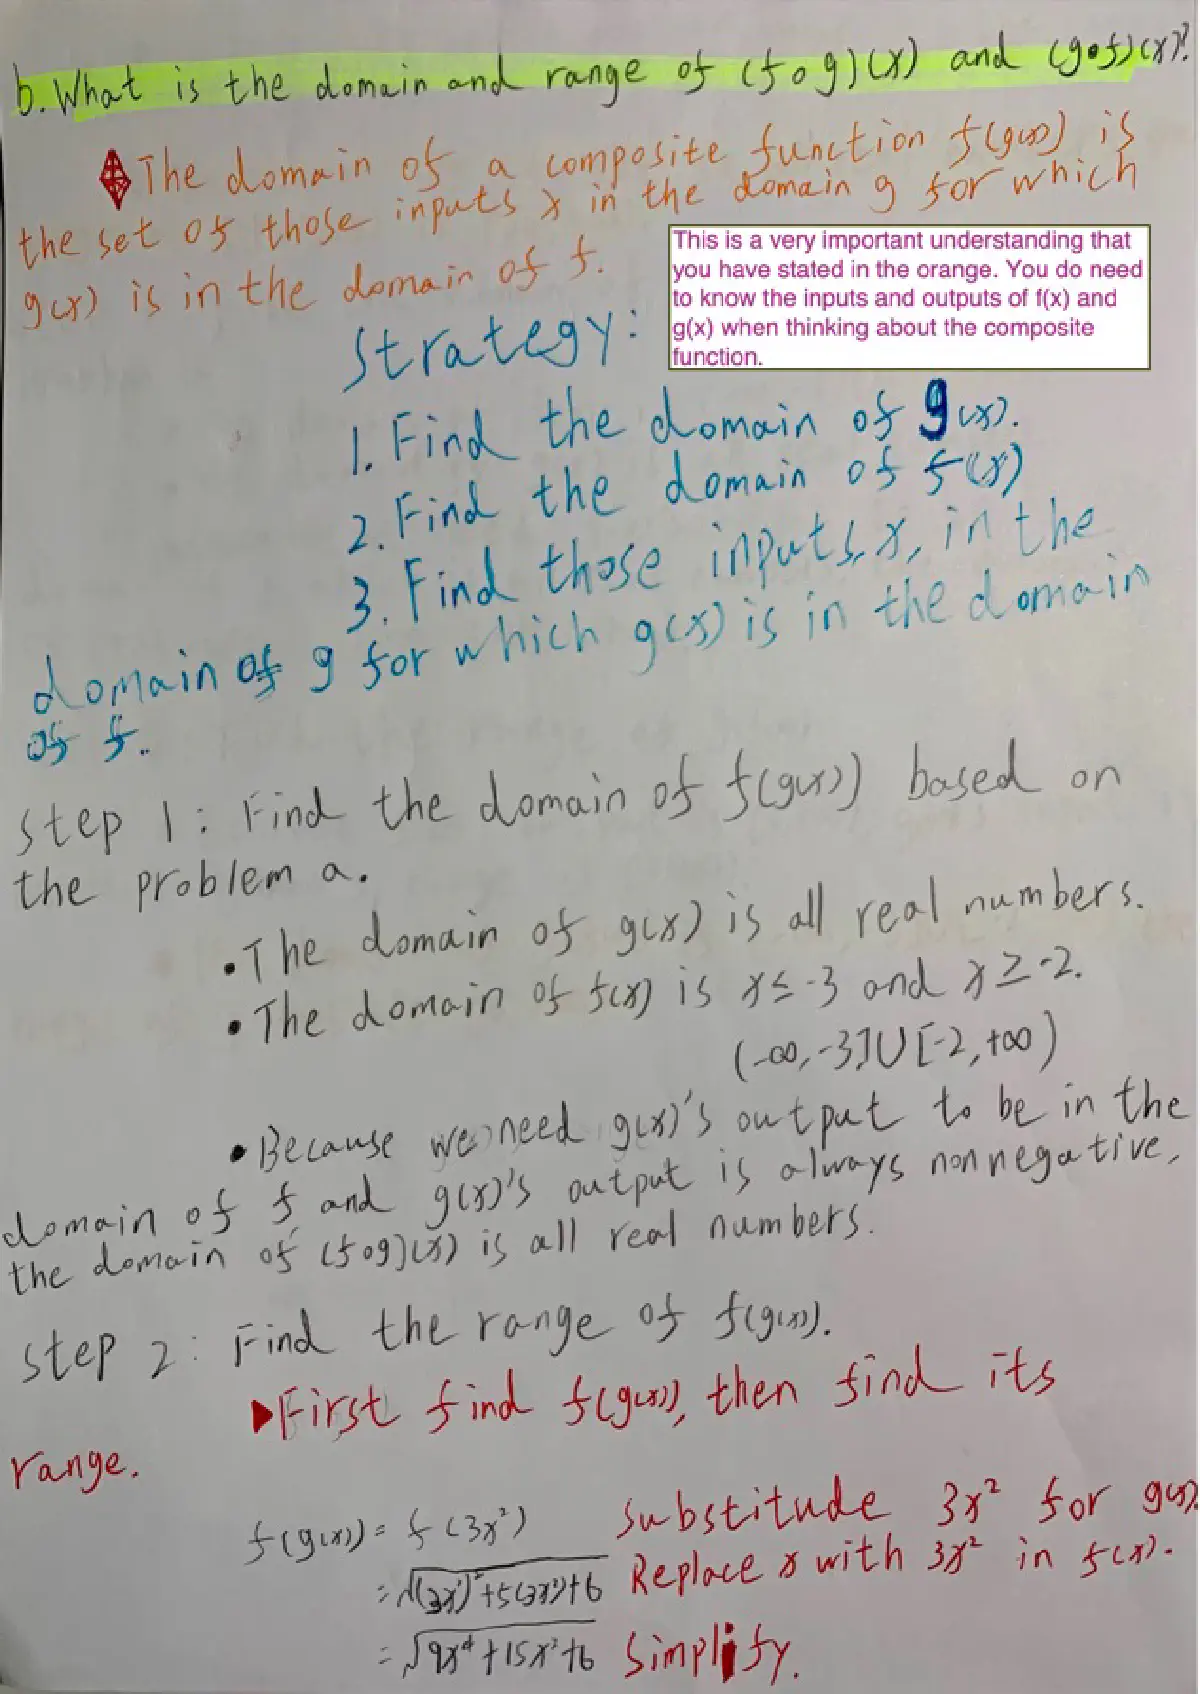 b. What is the domain and range of (f o g)(x) and (g•f)(x)?
The domain of a composite function f(g(x)) is
the set of those inputs x in the domain g for which
g(x) is in the domain of f.
This is a very important understanding that
you have stated in the orange. You do need
to know the inputs and outputs of f(x) and
g(x) when thinking about the composite
function.
Strategy:
1. Find the domain of g(x).
2. Find the domain of f(x)
3. Find those inputs, x, in the
domain of g for which g(x) is in the domain
of f..
Step 1: Find the domain of f(g(x)) based on
the problem a.
•The domain of g(x) is all real numbers.
•The domain of f(x) is x≤-3 and x≥-2.
(-∞,-3]U[-2,+∞)
•Because we need g(x)'s output to be in the
domain of f, and g(x)'s output is always nonnegative,
the domain of (f∘g)(x) is all real numbers.
Step 2: Find the range of f(g(x)).
▶First find f(g(x)), then find its
range.
f(g(x)) = f(3x²) Substitude 3x² for g(x).
=√(3x²)²+5(3x²)+6 Replace x with 3x² in f(x).
=√9x⁴+15x²+6 Simplify.